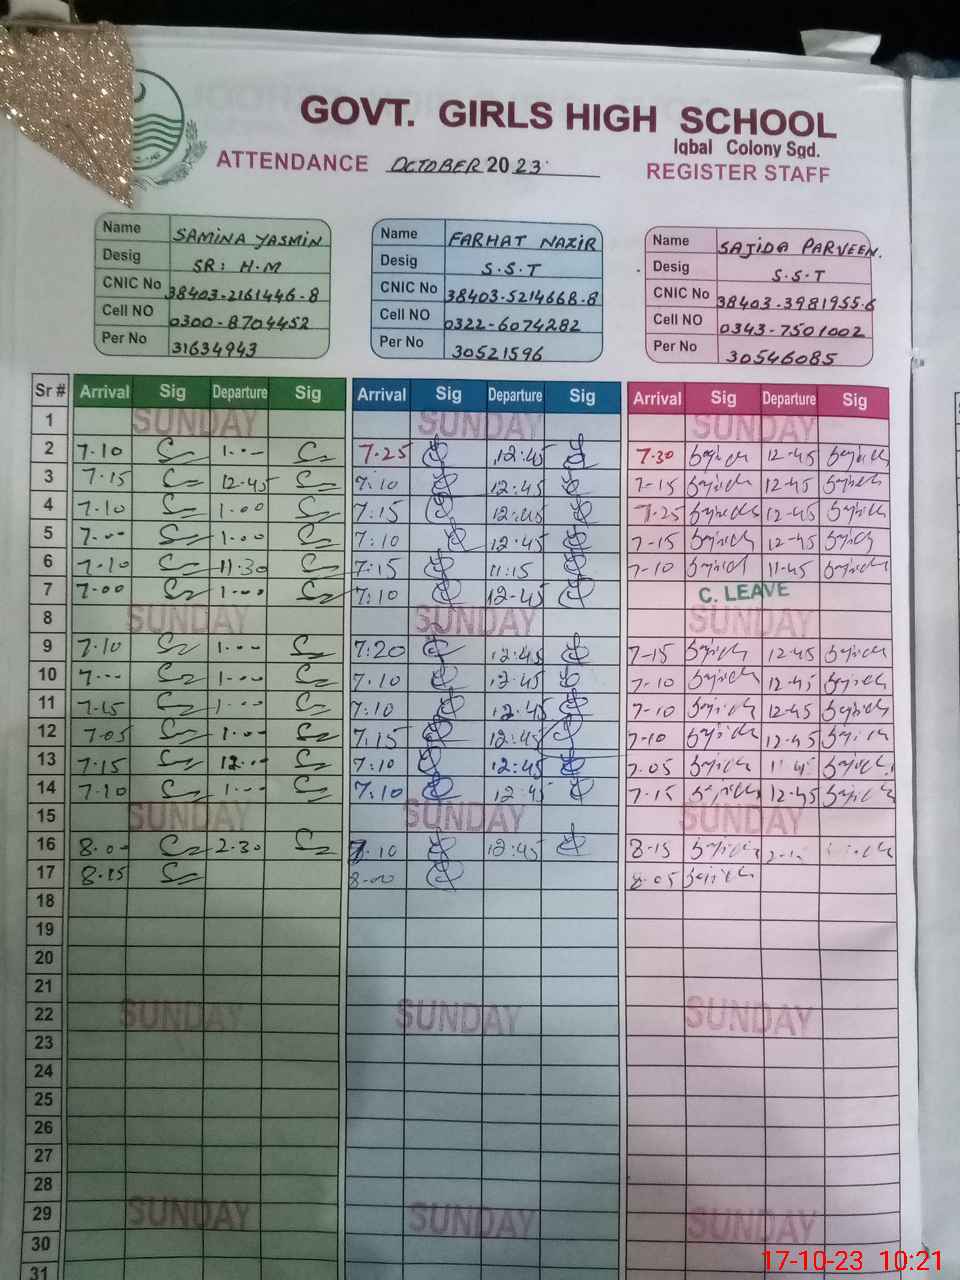 GOVT. GIRLS HIGH SCHOOL
Iqbal Colony Sgd.
ATTENDANCE OCTOBER 2023 REGISTER STAFF
Name SAMINA YASMIN
Desig SR: H.M
CNIC No 38403-2161446-8
Cell NO 0300-8704452
Per No 31634943
Name FARHAT NAZIR
Desig S.S.T
CNIC No 38403-5214668-8
Cell NO 0322-6074282
Per No 30521596
Name SAJIDA PARVEEN.
Desig S.S.T
CNIC No 38403-3981955-6
Cell NO 0343-7501002
Per No 30546085
Sr # Arrival Sig Departure Sig Arrival Sig Departure Sig Arrival Sig Departure Sig
1 SUNDAY SUNDAY SUNDAY
2 7.10 1.-- 7.25 12:45 7.30 12-45
3 7.15 12.45 7:10 12:45 7-15 12-45
4 7.10 1.00 7:15 12:45 7.25 12-45
5 7.-- 1.00 7:10 12:45 7-15 12-45
6 7.10 11.30 7:15 11:15 7-10 11-45
7 7.00 1.00 7:10 12-45 C. LEAVE
8 SUNDAY SUNDAY SUNDAY
9 7.10 1.-- 7:20 12:45 7-15 12-45
10 7.-- 1.-- 7.10 12:45 7-10 12-45
11 7.15 1.-- 7:10 12:45 7-10 12-45
12 7.05 1.-- 7:15 12:45 7-10 12-45
13 7.15 12.-- 7:10 12:45 7.05 11-45
14 7.10 1.-- 7:10 12:45 7-15 12-45
15 SUNDAY SUNDAY SUNDAY
16 8.0- 2.30 7.10 12:45 8-15
17 8.15 8-00 8-05
18
19
20
21
22 SUNDAY SUNDAY SUNDAY
23
24
25
26
27
28
29 SUNDAY SUNDAY SUNDAY
30
31
17-10-23 10:21